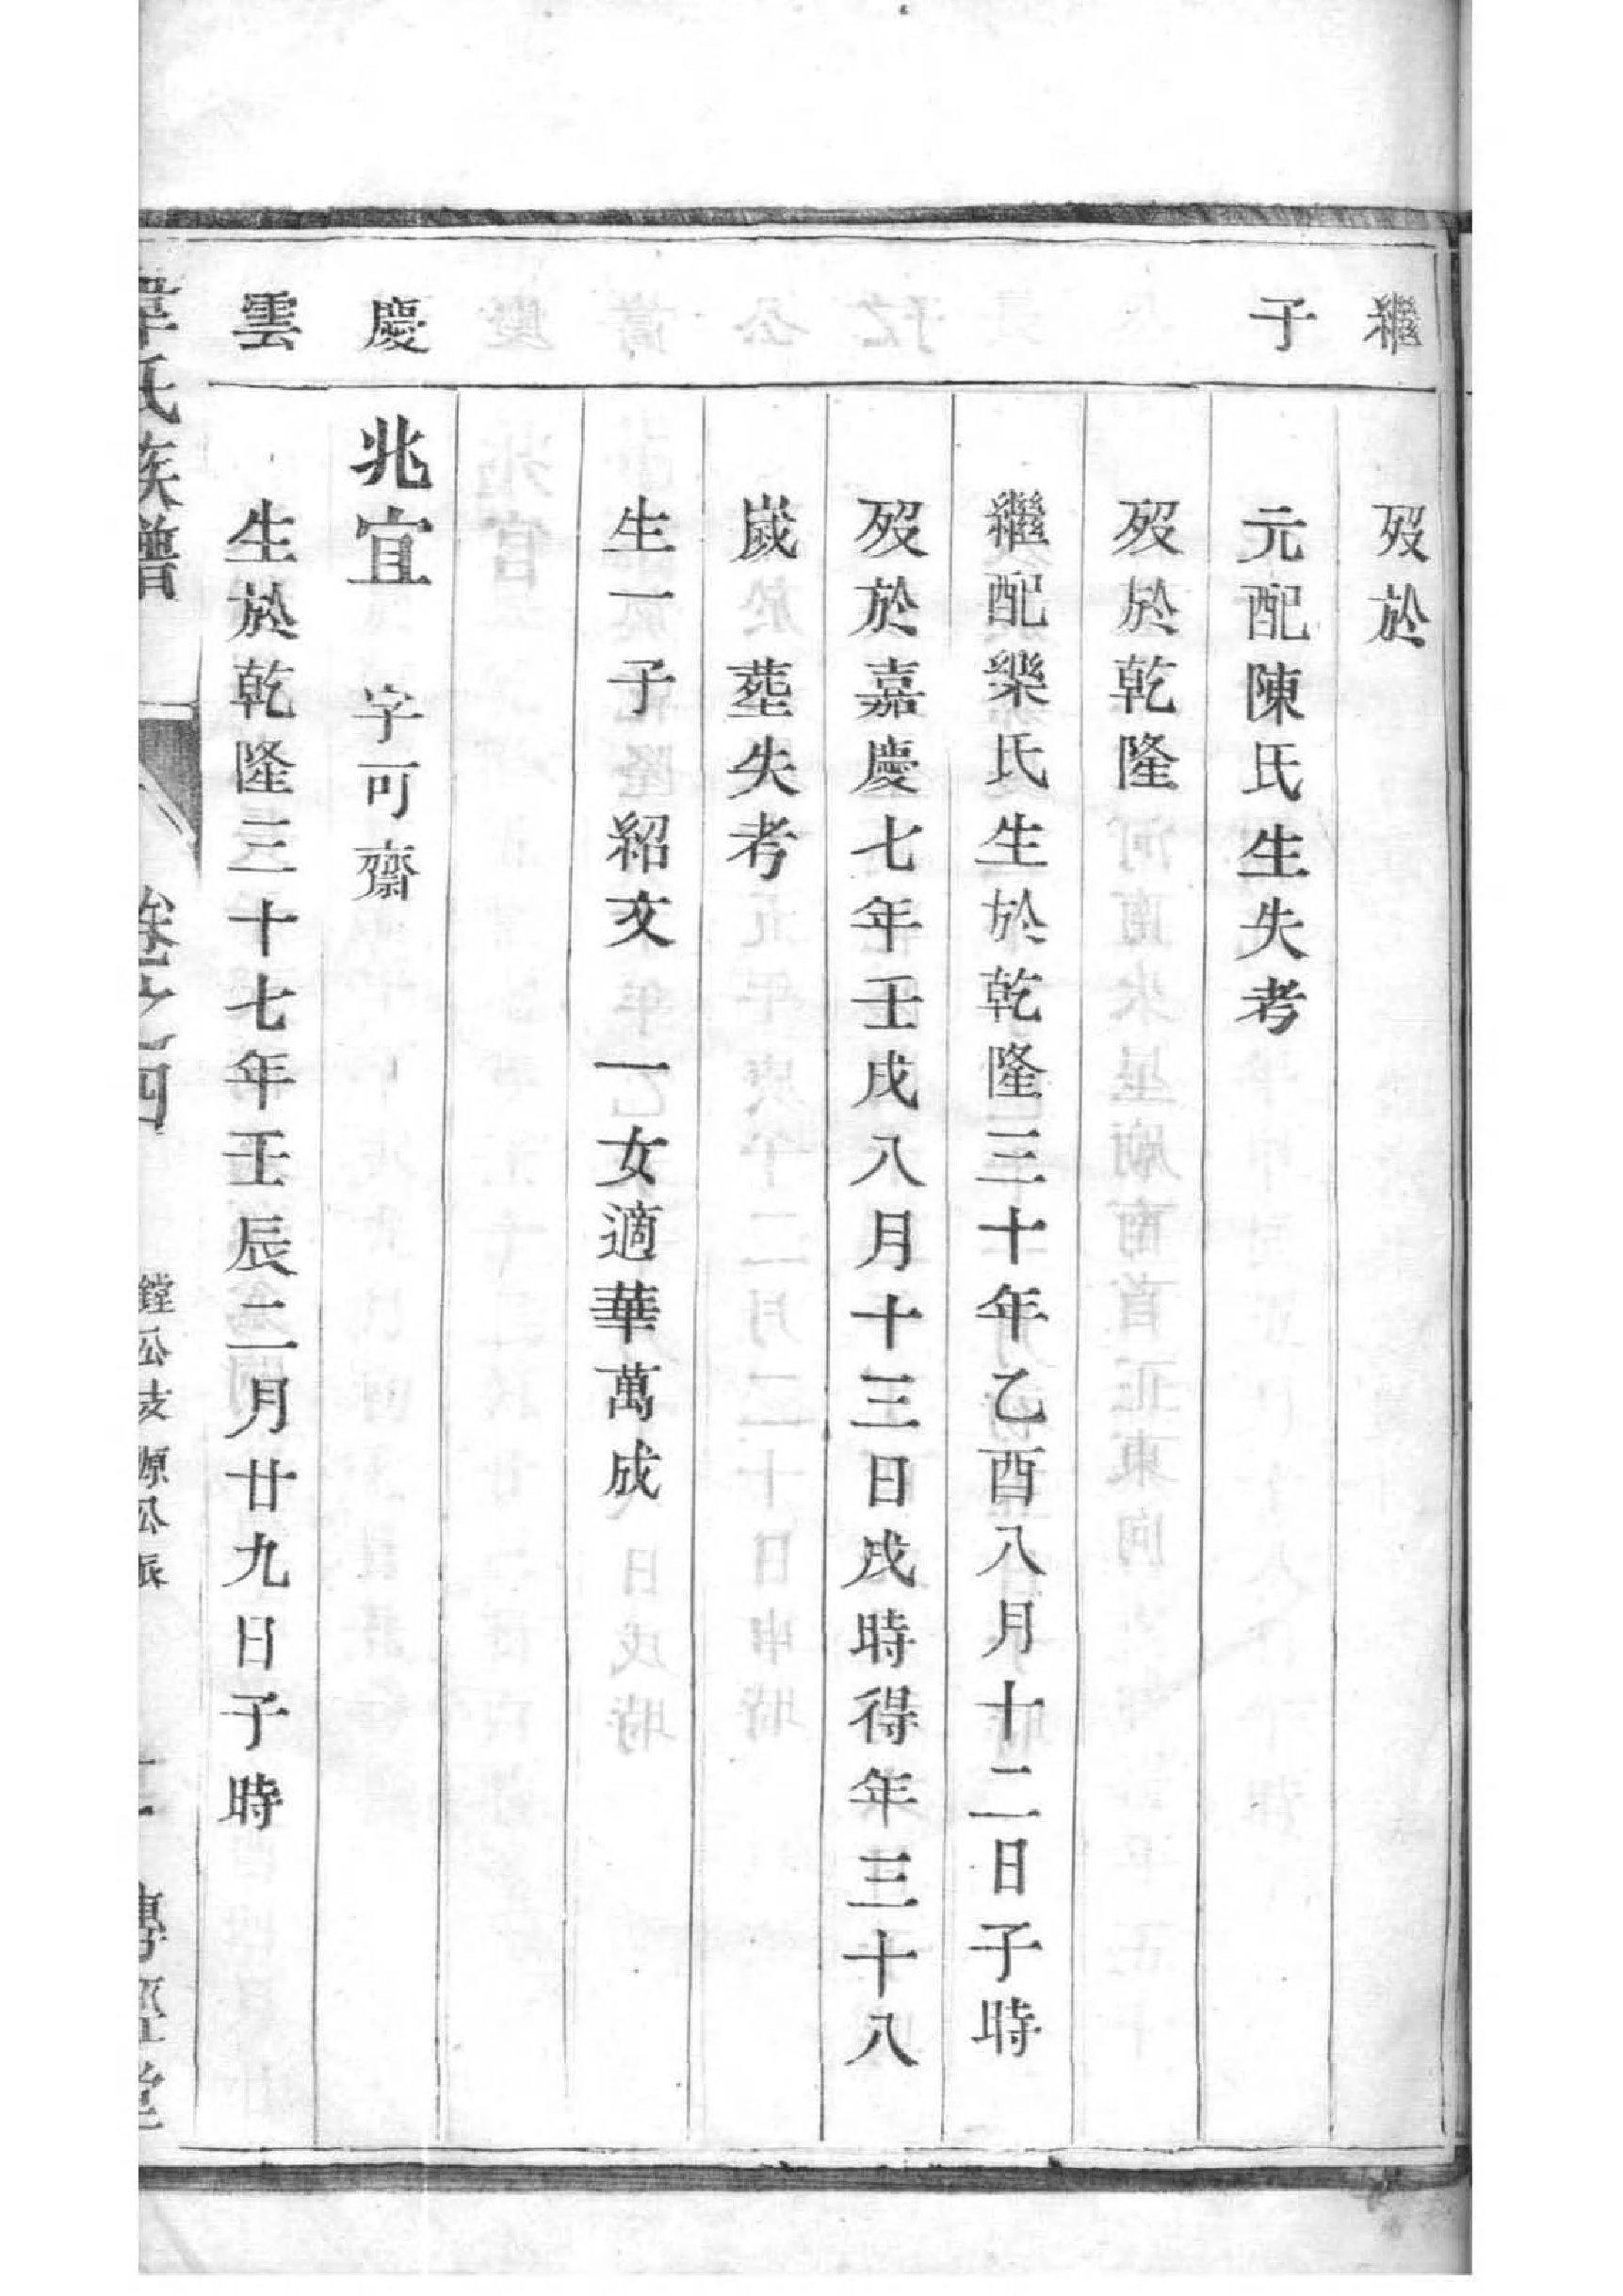 繼子
歿於
元配陳氏生失考
歿於乾隆
繼配樂氏生於乾隆三十年乙酉八月十二日子時
歿於嘉慶七年壬戌八月十三日戌時得年三十八
嵗 塟失考
生一子 紹文 一女適華萬成
慶雲
兆宜 字可齋
生於乾隆三十七年壬辰二月廿九日子時
韋氏族譜 卷之四 鏜公支源公派 傳經堂